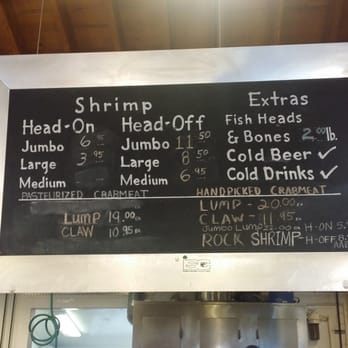 Shrimp
Head-On
Jumbo 6 95
Large 3 95
Medium -
Head-Off
Jumbo 11 50
Large 8 50
Medium 6 95
Extras
Fish Heads
& Bones 2.00 lb.
Cold Beer ✓
Cold Drinks ✓
PASTEURIZED CRABMEAT
LUMP 19.00
CLAW 10.95
HANDPICKED CRABMEAT
LUMP - 20.00
CLAW - 11.95
JUMBO LUMP
ROCK SHRIMP
H-ON
H-OFF